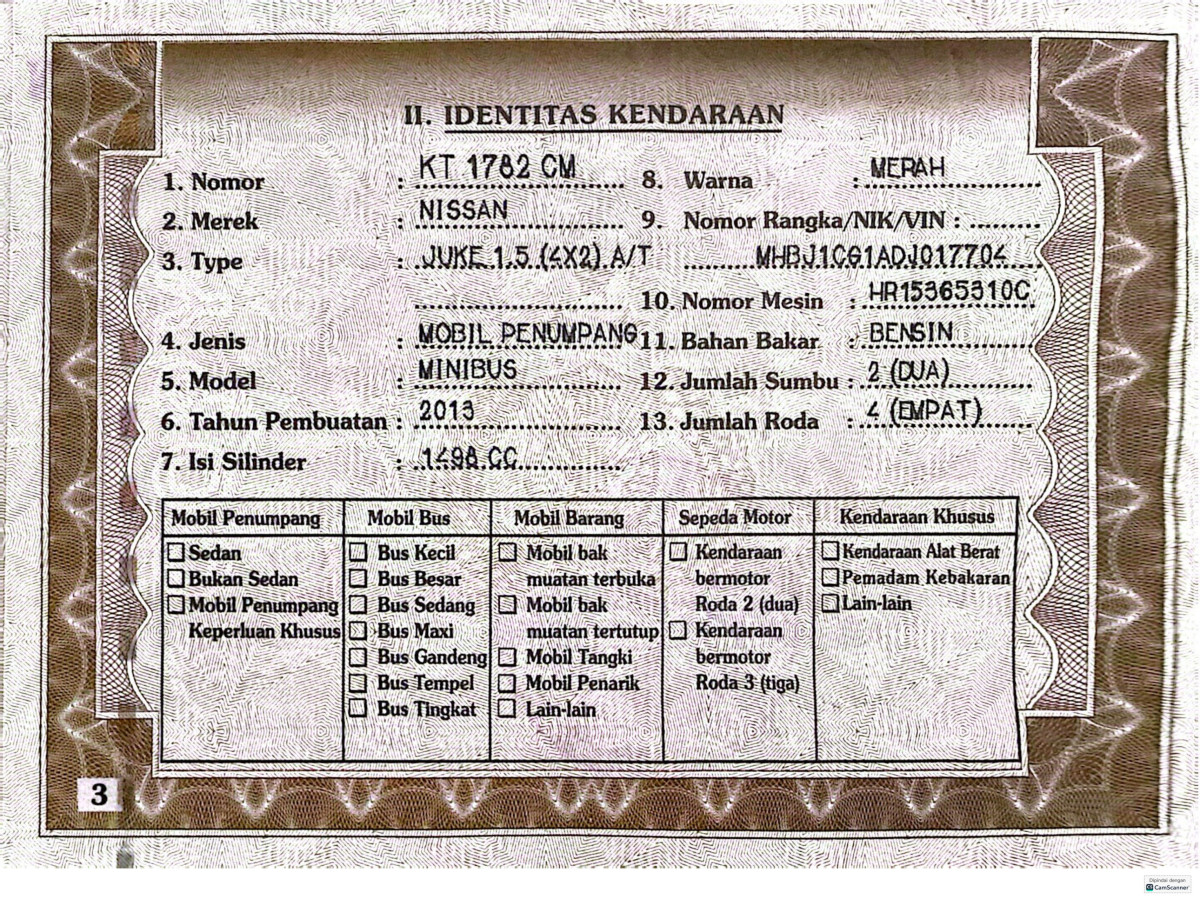 II. IDENTITAS KENDARAAN
1. Nomor : KT 1782 CM
2. Merek : NISSAN
3. Type : JUKE 1.5 (4X2) A/T
4. Jenis : MOBIL PENUMPANG
5. Model : MINIBUS
6. Tahun Pembuatan : 2013
7. Isi Silinder : 1498 CC
8. Warna : MERAH
9. Nomor Rangka/NIK/VIN :
MHBJ1CG1ADJ017704
10. Nomor Mesin : HR15365310C
11. Bahan Bakar : BENSIN
12. Jumlah Sumbu : 2 (DUA)
13. Jumlah Roda : 4 (EMPAT)
Mobil Penumpang
Sedan
Bukan Sedan
Mobil Penumpang
Keperluan Khusus
Mobil Bus
Bus Kecil
Bus Besar
Bus Sedang
Bus Maxi
Bus Gandeng
Bus Tempel
Bus Tingkat
Mobil Barang
Mobil bak
muatan terbuka
Mobil bak
muatan tertutup
Mobil Tangki
Mobil Penarik
Lain-lain
Sepeda Motor
Kendaraan
bermotor
Roda 2 (dua)
Kendaraan
bermotor
Roda 3 (tiga)
Kendaraan Khusus
Kendaraan Alat Berat
Pemadam Kebakaran
Lain-lain
3
Dipindai dengan
CamScanner